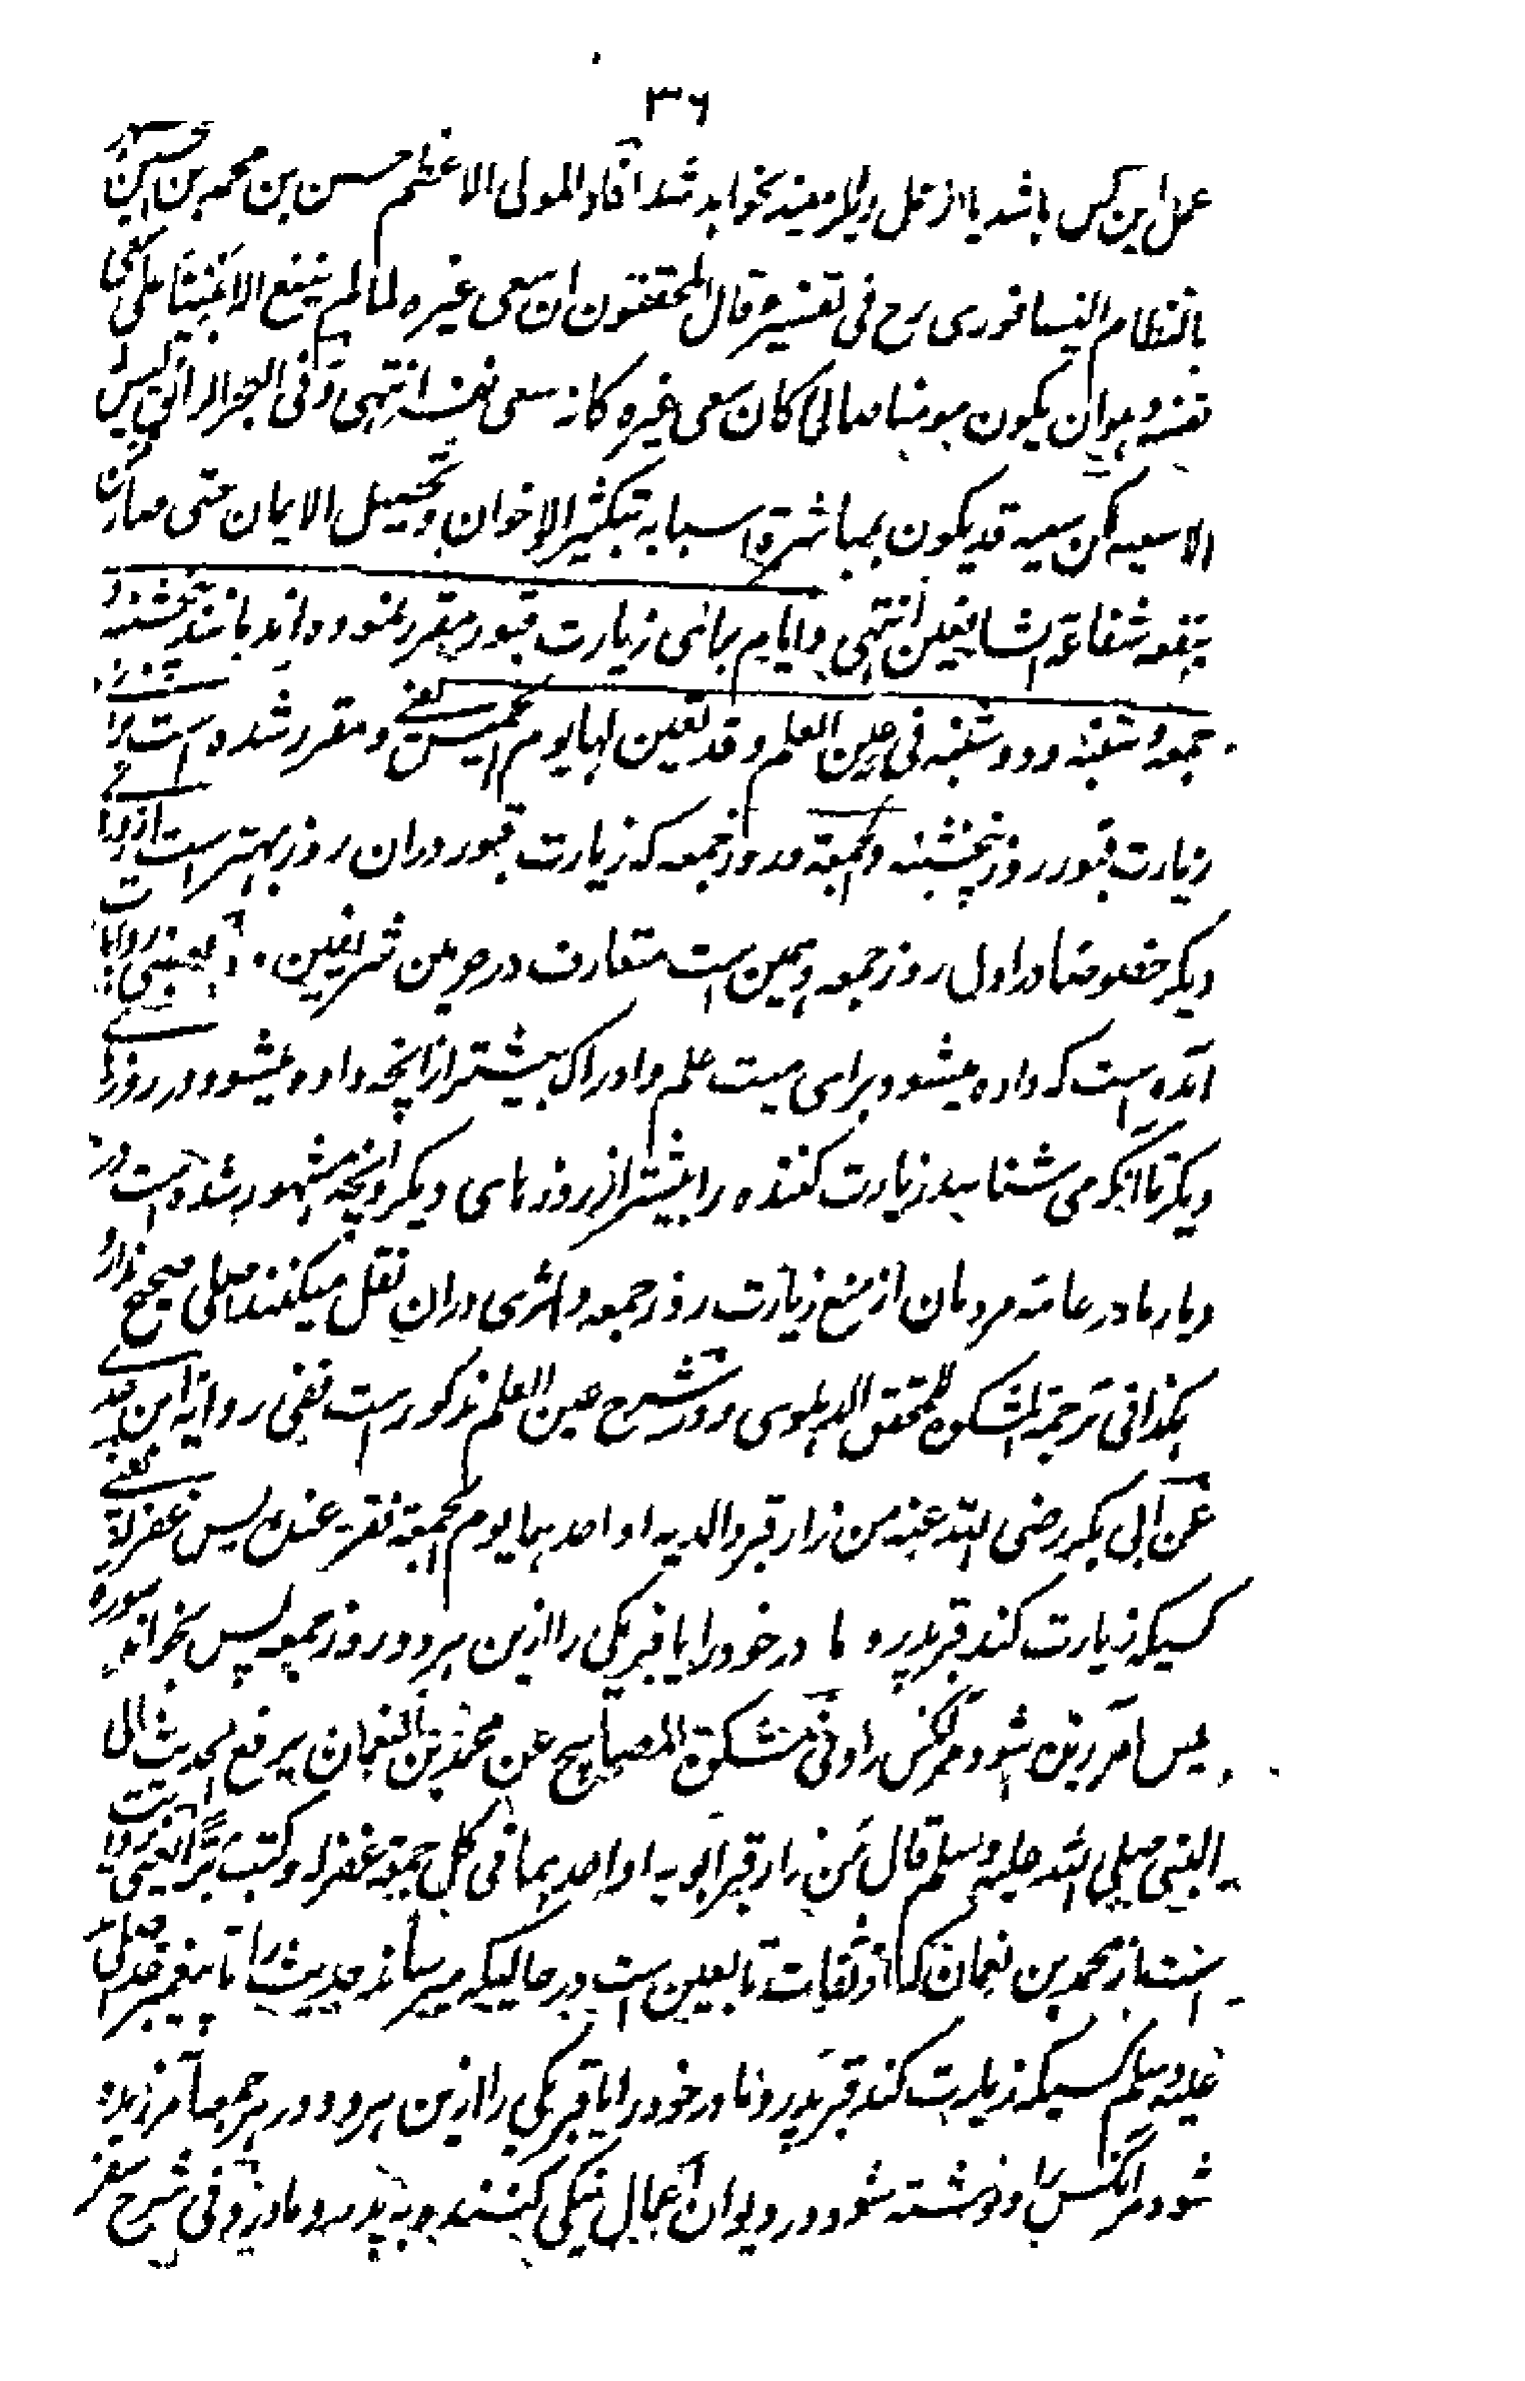 ۳۶
عمل این کس باشد یا از عمل دیگر مفید نخواهد شد افاد المولی الاعظم حسن بن محمد بن الحسین
بالنظام النیسافوری رح فی تفسیره قال المحققون ان سعی غیره لما لم ینفع الا مبنیا علی سعی
نفسه و هو ان یکون مومنا صالحا کان سعی غیره کانه سعی نفسه انتهی و فی البحر الرائق لیس
الا سعیه لکن سعیه قد یکون بمباشرة اسبابه بتکثیر الاخوان و تحصیل الایمان حتی صار ممن
ینفعه شفاعة الشافعین انتهی و ایام برای زیارت قبور مقرر نموده اند مانند پنجشنبه و
جمعه و شنبه و دوشنبه فی عین العلم و قد تعین لها یوم الخمیس یعنی و مقرر شده است برای
زیارت قبور روز پنجشنبه و الجمعة و روز جمعه که زیارت قبور دران روز بهتر است از روزهای
دیگر خصوصا در اول روز جمعه و همین است متعارف در حرمین شریفین و در بعضی روایات
آمده است که داده میشود برای میت علم و ادراک بیشتر از آنچه داده میشود در روزهای
دیگر تا آنکه می شناسد زیارت کننده را بیشتر از روزهای دیگر و آنچه مشهور شده است در
دیار ما در عامه مردمان از منع زیارت روز جمعه و اثری دران نقل میکنند اصلی صحیح ندارد
هکذا فی ترجمة المشکوة للمحقق الدهلوی و در شرح عین العلم مذکور است ففی روایة ابن عدی
عن ابی بکر رضی الله عنه من زار قبر والدیه او احدهما یوم الجمعة فقرء عنده یس غفر له یعنی
کسیکه زیارت کند قبر پدر و مادر خود را یا قبر یکی را ازین هر دو روز جمعه پس بخواند سوره
یس آمرزیده شود مر آنکس را و فی مشکوة المصابیح عن محمد بن النعمان یرفع الحدیث الی
النبی صلی الله علیه وسلم قال من زار قبر ابویه او احدهما فی کل جمعة غفر له و کتب برا یعنی روایت
است از محمد بن نعمان که از ثقات تابعین است در حالیکه میرساند حدیث را تا پیغمبر خدا صلی الله
علیه وسلم کسیکه زیارت کند قبر پدر و مادر خود را یا قبر یکی را ازین هر دو در هر جمعه آمرزیده
شود مر آنکس را و نوشته شود در دیوان اعمال نیکی کننده به پدر و مادر و فی شرح سفر